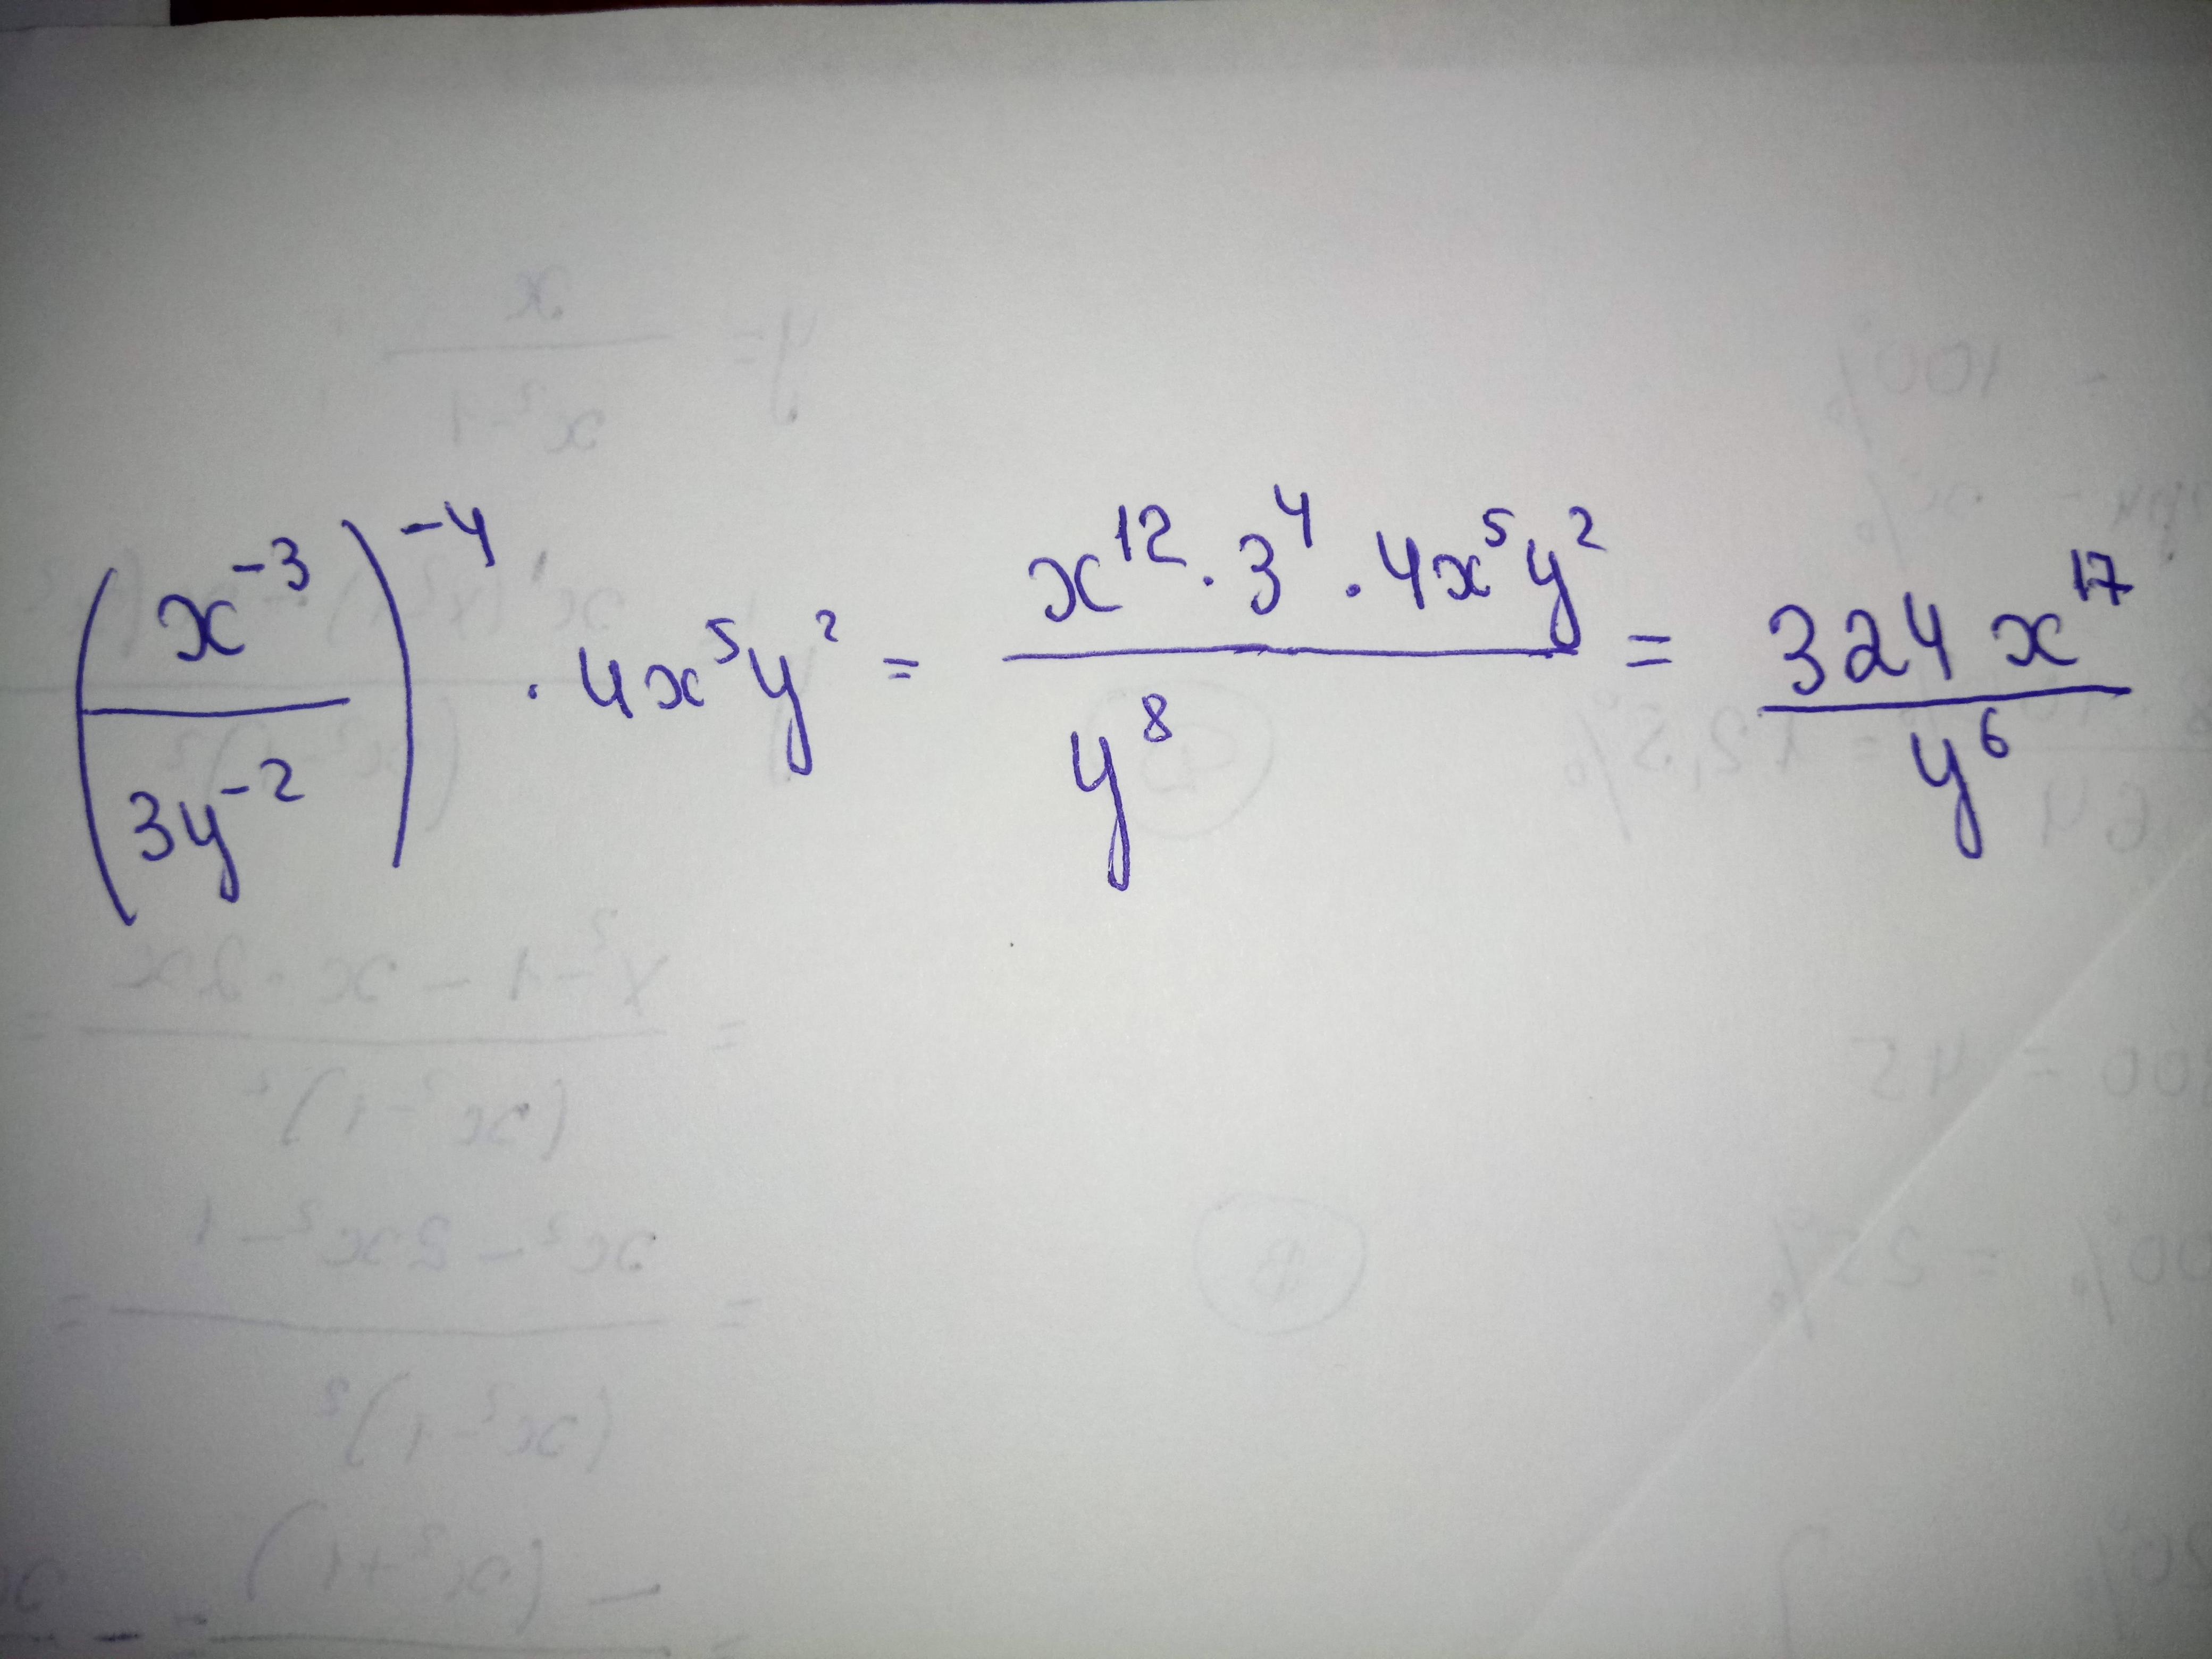 (x^-3 / 3y^-2)^-4 · 4x^5y^2 = x^12 · 3^4 · 4x^5y^2 / y^8 = 324x^17 / y^6